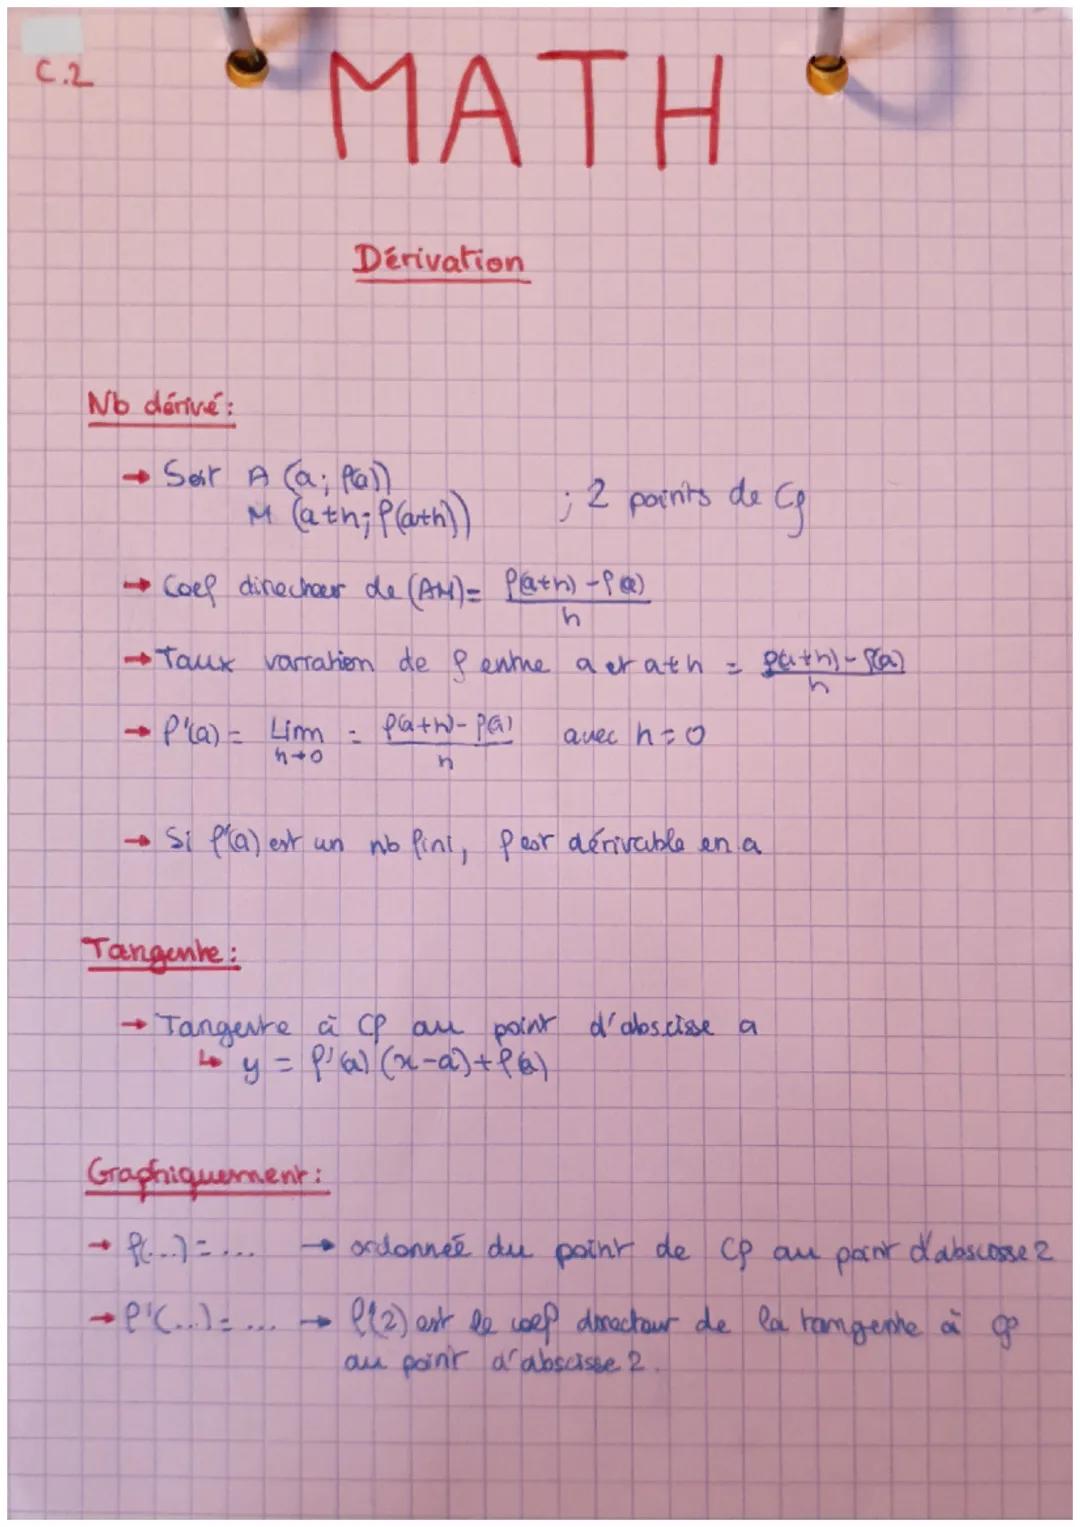 C.2
MATH
Dérivation
Nb dérivé :
→ Soit A (a ; f(a))
M (a+h ; f(a+h)) ; 2 points de Cf
→ Coef directeur de (AM) = f(a+h) - f(a) / h
→ Taux variation de f entre a et a+h = f(a+h) - f(a) / h
→ f'(a) = Lim h→0 = f(a+h) - f(a) / h avec h = 0
→ Si f'(a) est un nb fini, f est dérivable en a
Tangente :
→ Tangente à Cf au point d'abscisse a
↳ y = f'(a) (x-a) + f(a)
Graphiquement :
→ f(...) = ... → ordonnée du point de Cf au point d'abscisse 2
→ f'(...) = ... → f'(2) est le coef directeur de la tangente à Cf
au point d'abscisse 2.